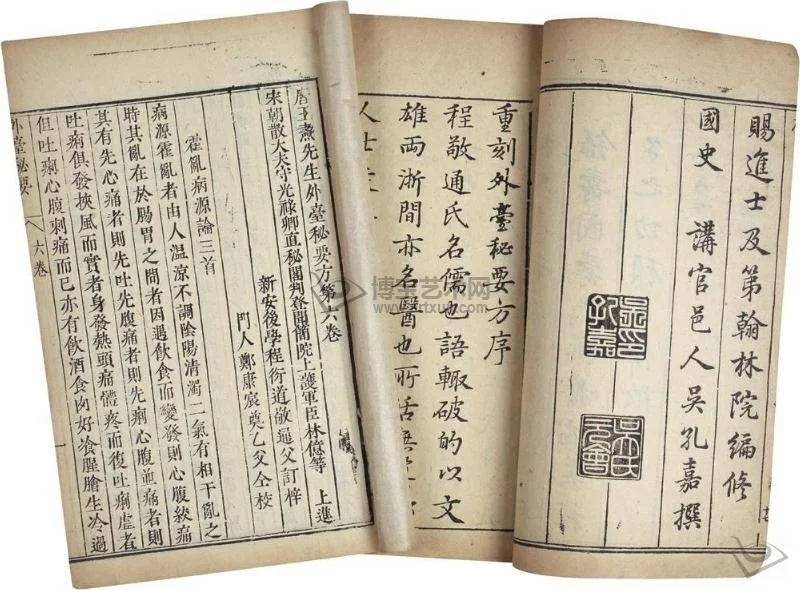 賜進士及第翰林院編修
國史　講官邑人吳孔嘉撰
重刻外臺秘要方序
程敬通氏名儒也語輙破的以文
雄兩浙間亦名醫也所活
人士
唐王燾先生外臺秘要方第六卷
宋朝散大夫守光祿卿直秘閣判登聞簡院上護軍臣林億等　上進
新安後學程衍道敬通父訂梓
門人鄭康宸奠乙父仝校
霍亂病源論三首
病源霍亂者由人温凉不調陰陽清濁二氣有相干亂之
時其亂在於腸胃之間者因遇飲食而變發則心腹絞痛
其有先心痛者則先吐先腹痛者則先痢心腹並痛者則
吐痢俱發挾風而實者身發熱頭痛體疼而復吐痢虛者
但吐痢心腹刺痛而已亦有飲酒食肉好飡腥膾生冷過
外臺秘要
六卷
一
博宝艺术网
www.artxun.com